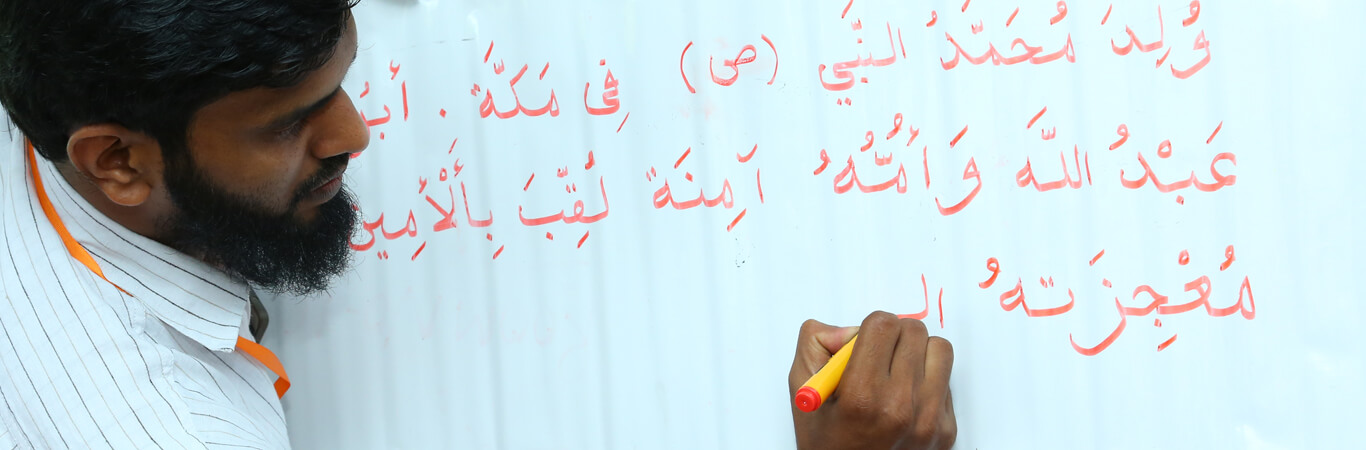 وُلِدَ مُحَمَّدُ النَّبِي (ص) فِي مَكَّةَ . أَبُ
عَبْدُ اللَّه وَأُمُّهُ آمِنَة لُقِّبَ بِالْأَمِين
مُعْجِزَتهُ ال